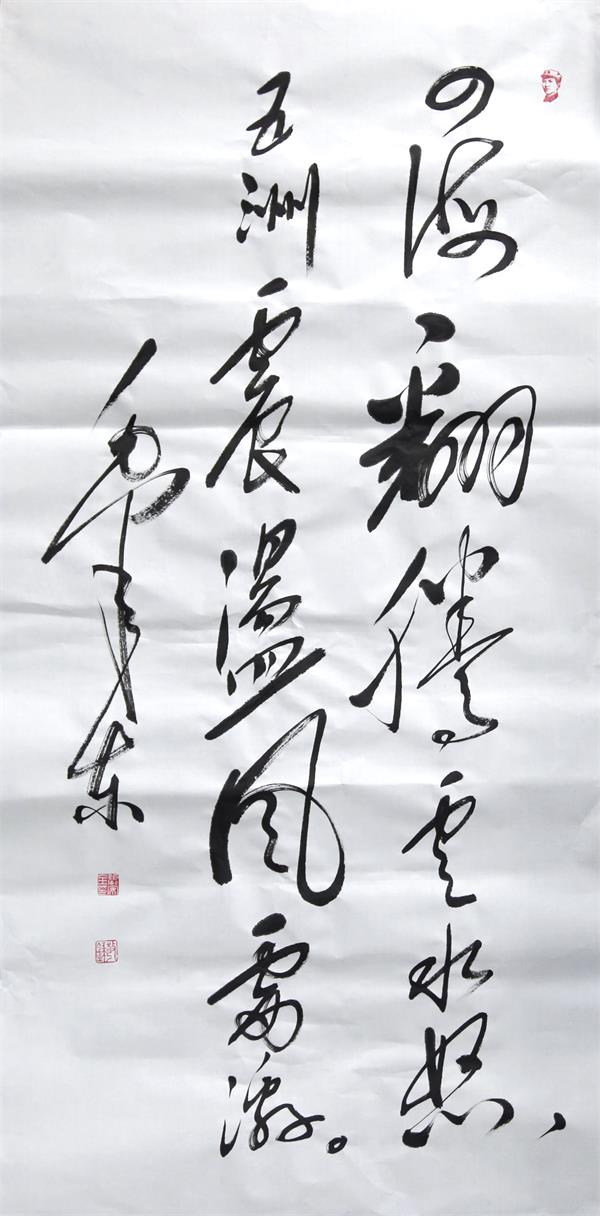 四海翻腾云水怒、
五洲震盪风雷激。
毛泽东